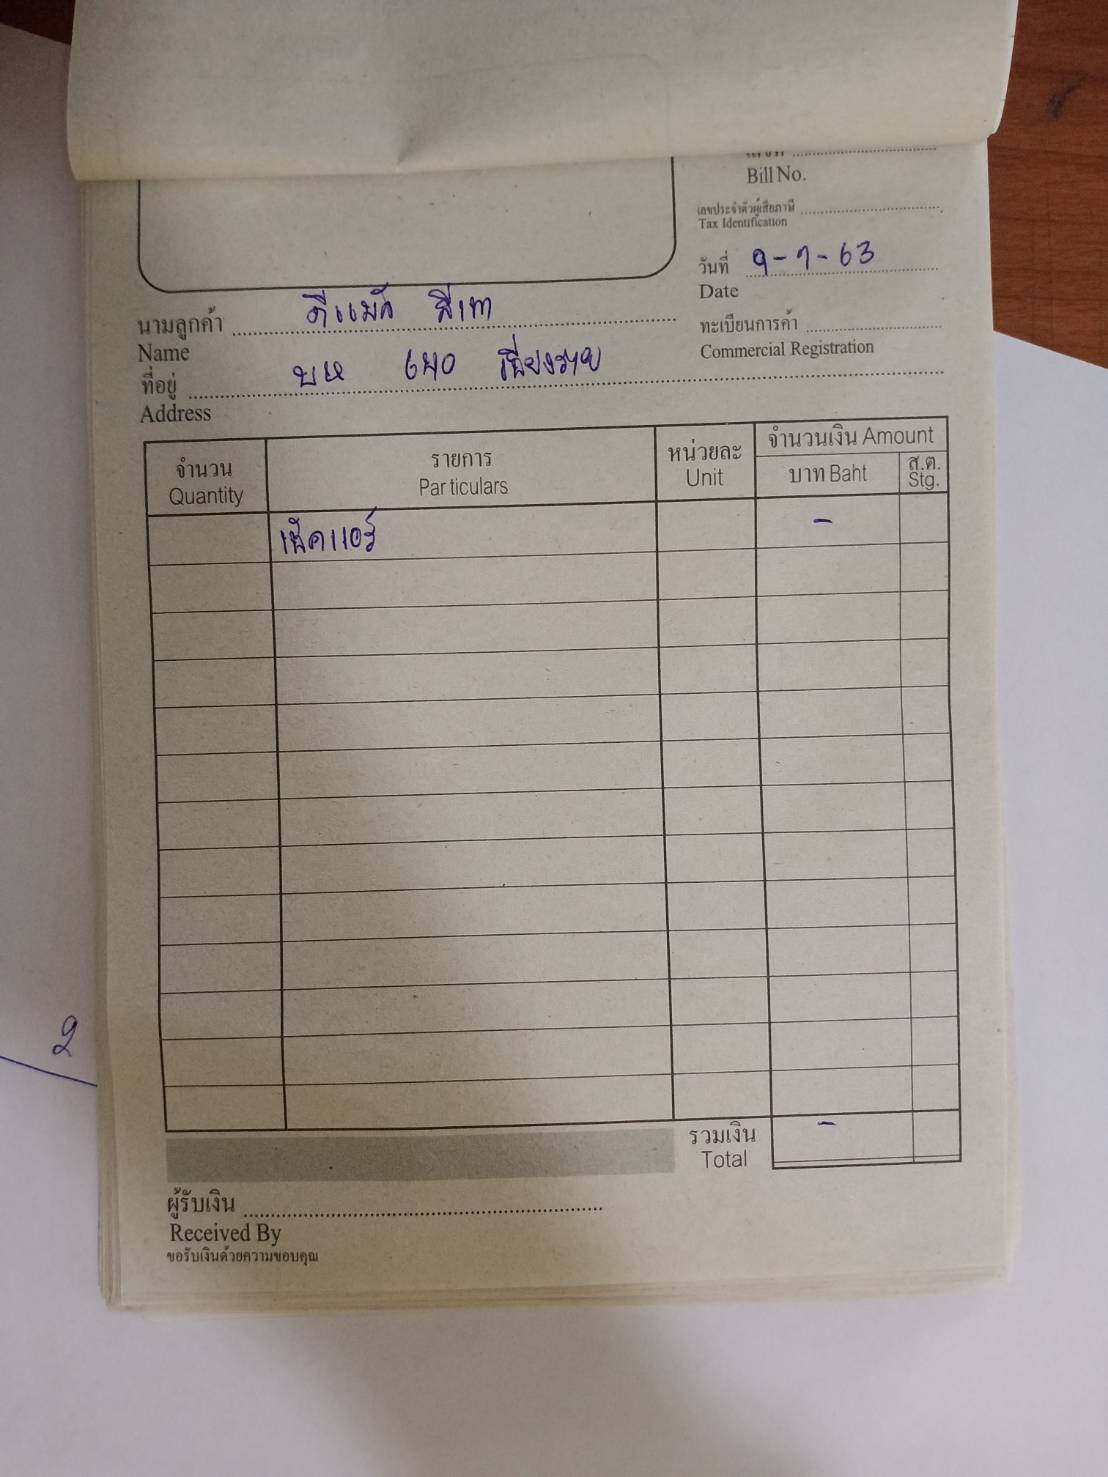 Bill No.
เลขประจำตัวผู้เสียภาษี
Tax Identification
วันที่ 9-7-63
Date
นามลูกค้า ดีแม็ก สีเทา
Name
ทะเบียนการค้า
Commercial Registration
ที่อยู่ บห 640 เชียงราย
Address
จำนวน รายการ หน่วยละ จำนวนเงิน Amount
Quantity Particulars Unit บาท Baht ส.ต. Stg.
เช็คแอร์ -
รวมเงิน -
Total
ผู้รับเงิน
Received By
ขอรับเงินด้วยความขอบคุณ
2